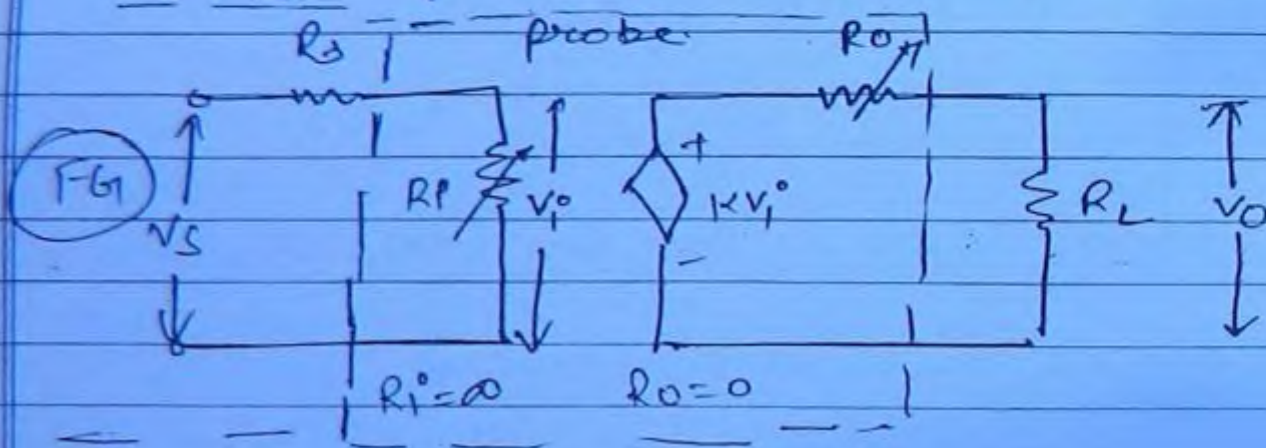 Rs probe Ro
FG Vs RP Vi KVi RL Vo
Ri=∞ Ro=0